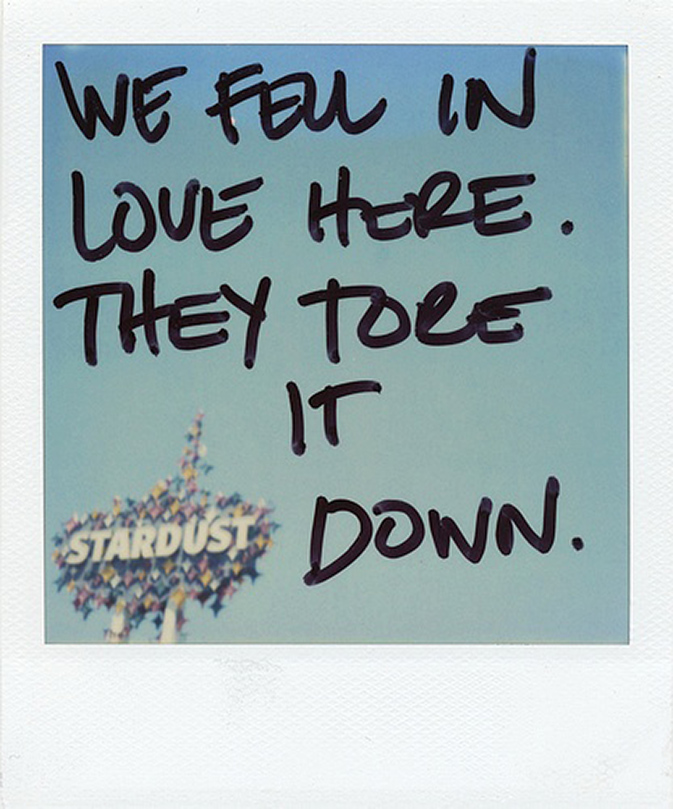 WE FELL IN
LOVE HERE.
THEY TORE
IT
DOWN.
STARDUST